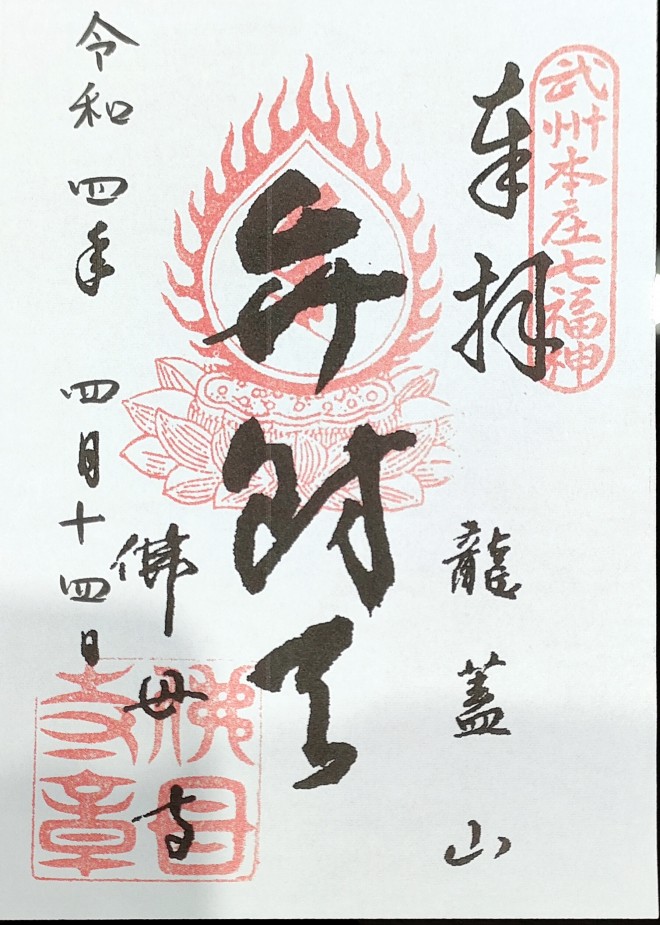 武州本庄七福神
奉拝
龍蓋山
弁財天
佛母寺
佛母寺章
令和四年 四月十四日